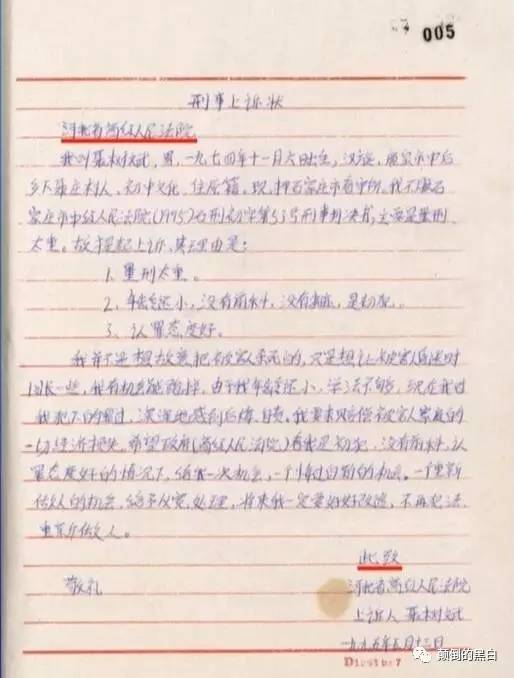 005
刑事上诉状
河北省高级人民法院
我叫聂树斌，男，一九七四年十一月六日出生，汉族，鹿泉市申后
乡下聂庄村人，初中文化，住原籍，现押石家庄市看守所，我不服石
家庄市中级人民法院(1995)石刑初字第53号刑事判决书，主要是量刑
太重。故提起上诉，其理由是：
1、量刑太重。
2、年龄还小，没有前科，没有劣迹，是初犯。
3、认罪态度好。
我并不是想故意把被害人杀死的，只是想让被害人昏迷时
间长一些，我有机会能跑掉，由于我年龄还小，学法不够，现在我对
我犯下的罪过，深深地感到后悔、自责。我要求赔偿被害人家庭的
一切经济损失。希望政府(高级人民法院)看我是初犯，没有前科，认
罪态度好的情况下，给我一次机会，一个悔过自新的机会，一个重新
做人的机会，给予从宽处理，将来我一定要好好改造，不再犯法，
重新做人。
此致
敬礼
河北省高级人民法院
上诉人 聂树斌
一九九五年五月十三日
颠倒的黑白